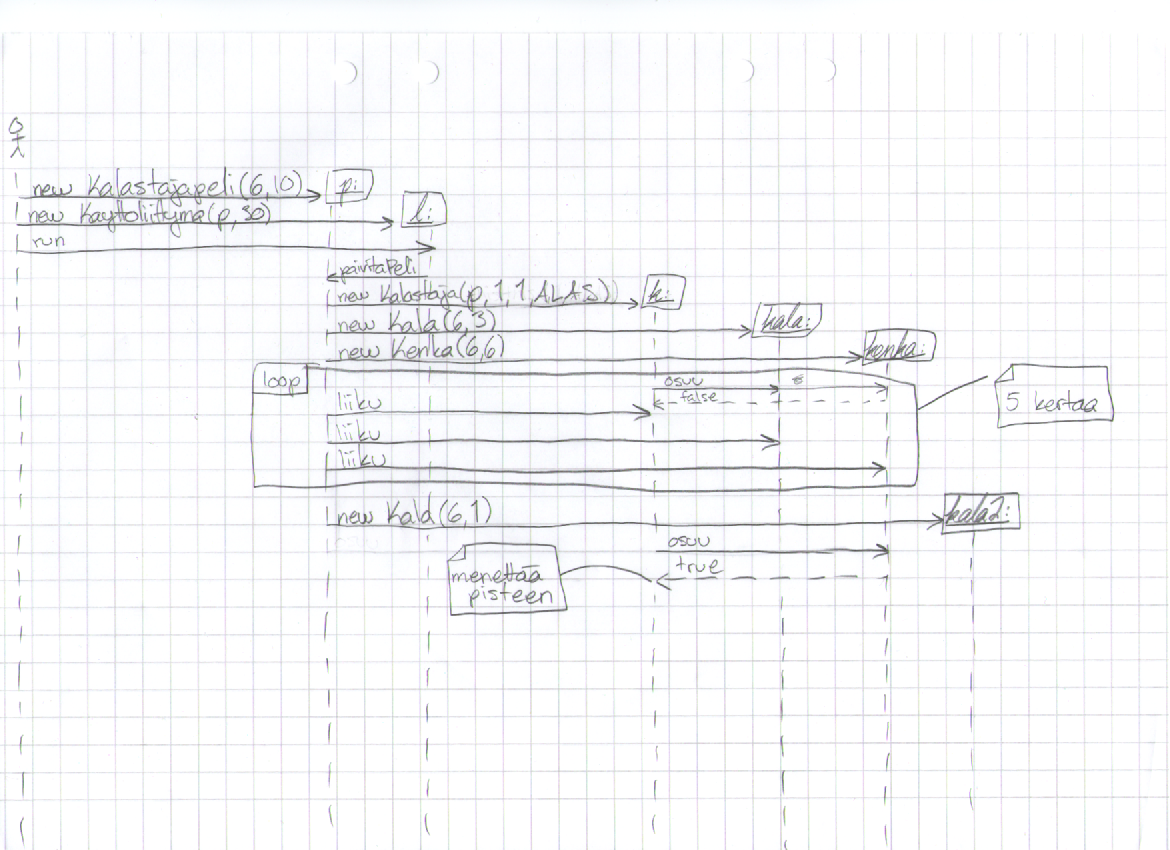 new Kalastajapeli(6,10)
p:
new Kayttoliityma(p,30)
l:
run
paivitaPeli
new Kalastaja(p,1,1,ALAS)
k:
new Kala(6,3)
kala:
new Kenka(6,6)
kenka:
loop
osuu
false
5 kertaa
liiku
liiku
liiku
new Kala(6,1)
kala2:
osuu
true
menettää
pisteen